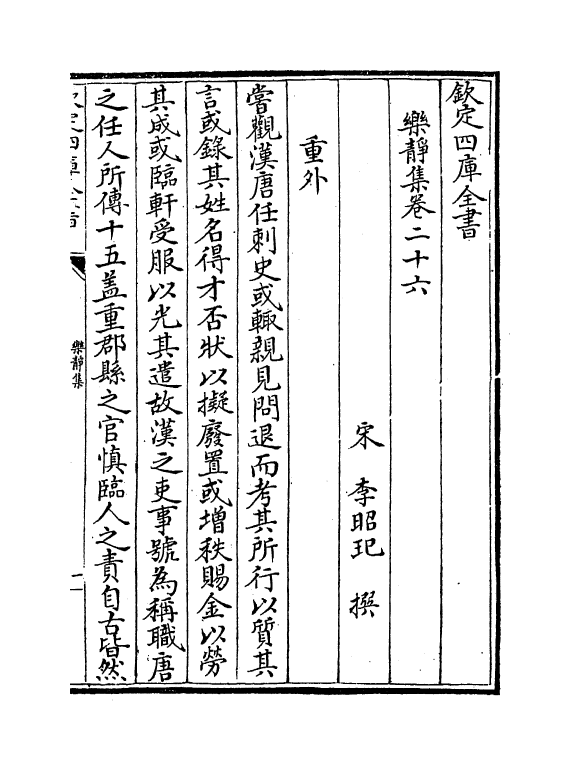 欽定四庫全書
樂靜集卷二十六
宋 李昭玘 撰
重外
嘗觀漢唐任刺史或輙親見問退而考其所行以質其
言或錄其姓名得才否狀以擬廢置或增秩賜金以勞
其成或臨軒受服以光其遣故漢之吏事號為稱職唐
之任人所傳十五葢重郡縣之官慎臨人之責自古皆然
欽定四庫全書
樂靜集
一